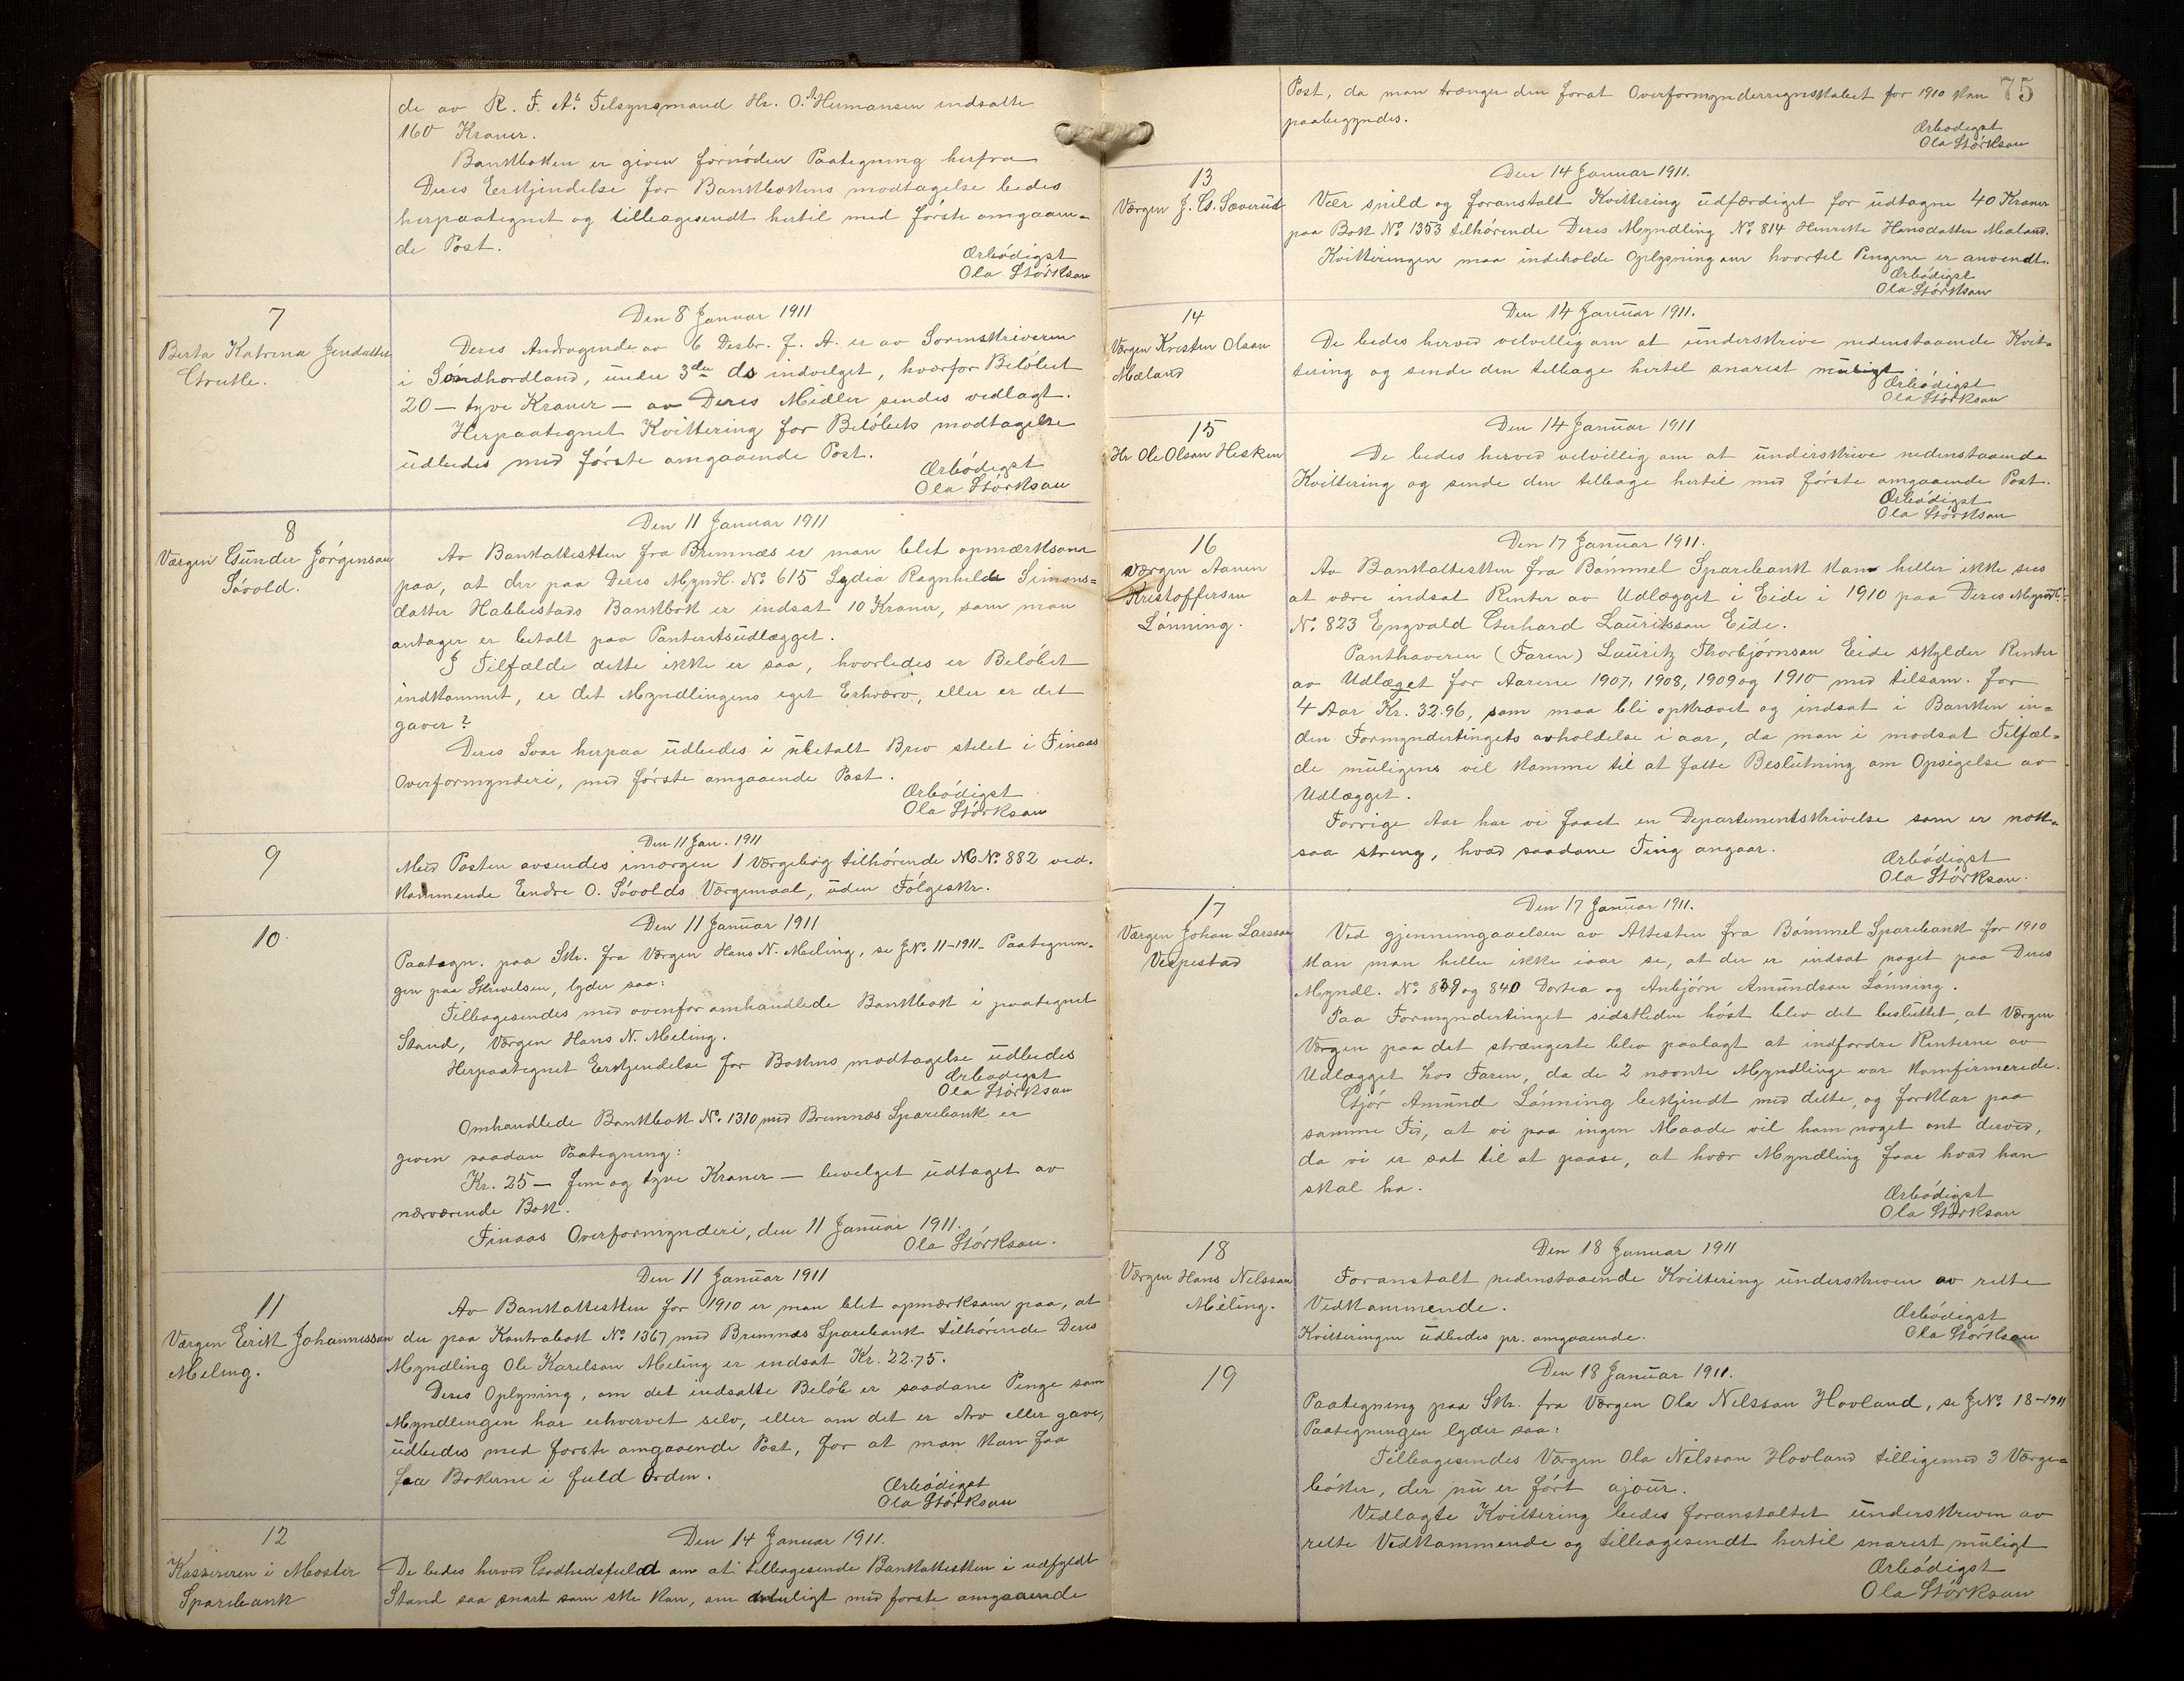 de av R. F. A's Tilsynsmand Hr. O. A. Hermansen indsatte
160 Kroner.
Bankboken er given fornöden Paategning herfra
Deres Erkjendelse for Bankbokens modtagelse bedes
herpaategnet og tilbagesendt hertil med förste omgaaen-
de Post.
Ærbödigst
Ola Störkson
7
Berta Katrina Jensdatter
Den 8 Januar 1911
Deres Andragende av 6 Desbr. f. A. er av Sorenskriveren
i Söndhordland, under 3die ds indvilget, hvorfor Belöbet
20 — tyve Kroner — av Deres Midler sendes vedlagt.
Herpaategnet Kvittering for Belöbets modtagelse
udbedes med förste omgaaende Post.
Ærbödigst
Ola Störkson
8
Værgen Gunder Jörgenson
Sövold.
Den 11 Januar 1911
Av Bankattesten fra Bremnæs er man blet opmærksom
paa, at der paa Deres Myndl. No 615 Lydia Ragnhilde Simons=
datter Habbestads Bankbok er indsat 10 Kroner, som man
antager er betalt paa Panteretsudlægget.
I Tilfælde dette ikke er saa, hvorledes er Belöbet
indkommet, er det Myndlingens eget Erhværv, eller er det
gaver?
Deres Svar herpaa udbedes i ubetalt Brev stilet i Finaas
Overformynderi, med förste omgaaende Post.
Ærbödigst
Ola Störkson
9
Den 11 Jan. 1911
Med Posten avsendes imorgen 1 Værgebog tilhörende M. No. 882 ved-
kommende Endre O. Sövolds Værgemaal, uden Fölgeskr.
10
Den 11 Januar 1911
Paategn. paa Skr. fra Værgen Hans N. Meling, se J.No. 11-1911. Paategnin-
gen paa Skrivelsen, lyder saa:
Tilbagesendes med ovenfor omhandlede Bankbok i paategnet
Stand, Værgen Hans N. Meling.
Herpaategnet Erkjendelse for Bokens modtagelse udbedes
Ærbödigst
Ola Störkson
Omhandlede Bankbok No. 1310 med Bremnæs Sparebank er
given saadan Paategning:
Kr. 25 — fem og tyve Kroner — bevilget udtaget av
nærværende Bok.
Finaas Overformynderi, den 11 Januar 1911.
Ola Störkson.
11
Værgen Erik Johannesson
Meling.
Den 11 Januar 1911
Av Bankattesten for 1910 er man blet opmærksom paa, at
der paa Kontrabok No. 1367 med Bremnæs Sparebank tilhörende Deres
Myndling Ole Karelson Meling er indsat Kr. 22.75.
Deres Oplysning, om det indsatte Belöb er saadane Penge som
Myndlingen har erhvervet selv, eller om det er Arv eller gave,
udbedes med förste omgaaende Post, for at man kan faa
faa Bokerne i fuld Orden.
Ærbödigst
Ola Störkson
12
Kassereren i Moster
Sparebank
Den 14 Januar 1911.
De bedes herved Godhedsfuld om at tilbagesende Bankattesten i udfyldt
Stand saa snart som ske kan, om muligt med förste omgaaende
75
Post, da man trænger den forat Overformynderregnskabet for 1910 kan
paabegyndes.
Ærbödigst
Ola Störkson
13
Værgen J. G. Sæverud
Den 14 Januar 1911.
Vær snild og foranstalt Kvittering udfærdiget for udtagne 40 Kroner
paa Bok No. 1353 tilhörende Deres Myndling No. 814 Henrikke Hansdatter Mæland.
Kvitteringen maa indeholde Oplysning om hvortil Pengene er anvendt.
Ærbödigst
Ola Störkson
14
Værgen Kristen Olson
Mæland
Den 14 Januar 1911.
De bedes herved velvillig om at underskrive nedenstaaende Kvit-
tering og sende den tilbage hertil snarest muligt
Ærbödigst
Ola Störkson
15
Hr Ole Olson Hesken
Den 14 Januar 1911
De bedes herved velvillig om at underskrive nedenstaaende
Kvittering og sende den tilbage hertil med förste omgaaende Post.
Ærbödigst
Ola Störkson
16
Værgen Aanen
Kristoffersen
Lönning.
Den 17 Januar 1911.
Av Bankattesten fra Bömmel Sparebank kan heller ikke sees
at være indsat Renter av Udlægget i Eide i 1910 paa Deres Myndl.
No. 823 Engvald Gerhard Lauritsson Eide.
Panthaveren (Faren) Lauritz Thorbjörnson Eide skylder Renter
av Udlæget for Aarene 1907, 1908, 1909 og 1910 med tilsam. for
4 Aar Kr. 32.96, som maa bli opkrævet og indsat i Banken in-
den Formyndertingets avholdelse i aar, da man i modsat Tilfæl-
de muligens vil komme til at fatte Beslutning om Opsigelse av
Udlægget.
Forrige Aar har vi faaet en Departementskrivelse som er nok-
saa streng, hvad saadane Ting angaar.
Ærbödigst
Ola Störkson.
17
Værgen Johan Larsson
Vespestad
Den 17 Januar 1911.
Ved gjennemgaaelsen av Attesten fra Bömmel Sparebank for 1910
kan man heller ikke iaar se, at der er indsat noget paa Deres
Myndl. No. 839 og 840 Dortea og Anbjörn Amundson Lönning.
Paa Formyndertinget sidstleden höst blev det besluttet, at Værgen
Værgen paa det strængeste blev paalagt at indfordre Renterne av
Udlægget hos Faren, da de 2 nævnte Myndlinge var konfirmerede.
Gjör Amund Lönning bekjendt med dette, og forklar paa
samme Tid, at vi paa ingen Maade vil ham noget ont derved,
da vi er sat til at paase, at hver Myndling faar hvad han
skal ha.
Ærbödigst
Ola Störkson
18
Værgen Hans Nelsson
Meling.
Den 18 Januar 1911
Foranstalt nedenstaaende Kvittering underskreven av rette
Vedkommende.
Kvitteringen udbedes pr. omgaaende.
Ærbödigst
Ola Störkson
19
Den 18 Januar 1911.
Paategning paa Skr. fra Værgen Ola Nelsson Hovland, se J.No. 18-1911
Paategningen lyder saa:
Tilbagesendes Værgen Ola Nelsson Hovland tilligemed 3 Værge-
böker, der nu er fört ajour.
Vedlagte Kvittering bedes foranstaltet underskreven av
rette Vedkommende og tilbagesendt hertil snarest muligt
Ærbödigst
Ola Störkson